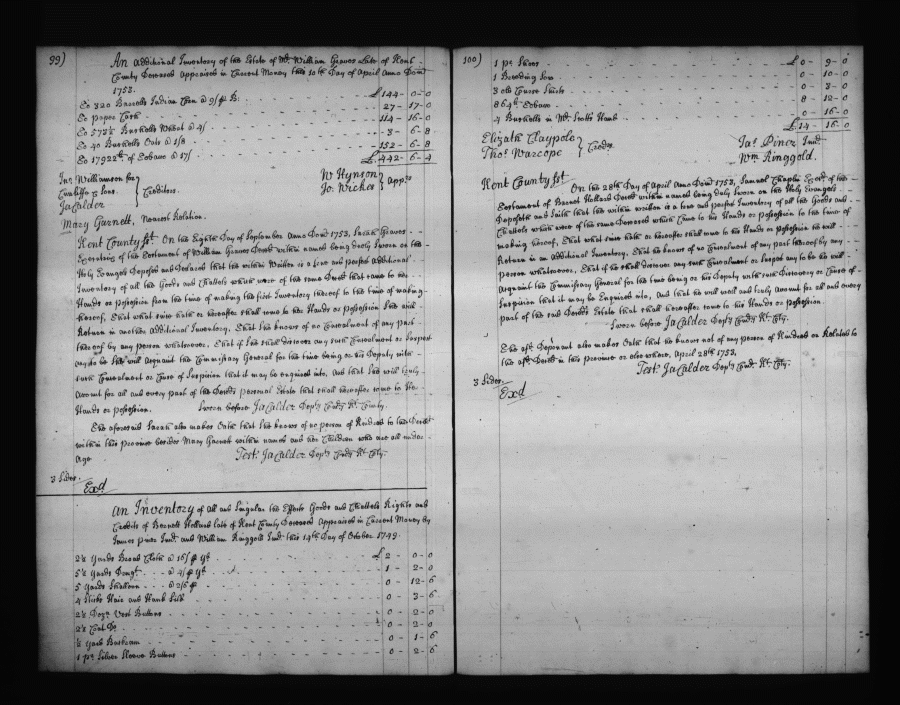 99)
An Additional Inventory of the Estate of Mr. William Graves Late of Kent
County Deceased Appraised in Current Money this 10th Day of April Anno Dom
1753.
To 320 Barrells Indian Corn @ 9/ ₱ B. £144-0-0
To paper Cash 27-17-0
To 573½ Bushells Wheat @ 4/ 114-16-0
To 40 Bushells Oats @ 1/8 3-6-8
To 17922lb of Tobacco @ 17/ 152-6-8
£442-6-4
Jno Williamson for
Cunliffe & Sons
Ja Calder
Creditors
W Hynson
Jo. Wickes
Apprs
Mary Garnett, Nearest Relation.
Kent County Sst. On the Eighth Day of September Anno Dom 1753, Sarah Graves
Executrix of the Testament of William Graves Decd within named being duly Sworn on the
Holy Evangels Deposeth and Declares that the within Written is a true and perfect Additional
Inventory of all the Goods and Chattels which were of the said Decd that came to her
Hands or possession from the time of making the first Inventory thereof to the time of making
hereof, that what since hath or hereafter shall come to her Hands or possession She will
Return in another Additional Inventory. That She knows of no Concealment of any part
thereof by any person whatsoever, that if She shall discover any such Concealment or Suspect
any to be She will acquaint the Commissary General for the time being or his Deputy with
such Concealment or Cause of Suspicion that it may be enquired into, and that She will Truly
Account for all and every part of the Decds personal Estate that shall hereafter come to Her
Hands or possession. Sworn before Ja Calder Depty Comry Kt. County.
The aforesaid Sarah also makes Oath that She knows of no person of Kindred to the Decd
within this Province besides Mary Garnet within named and her Children who are all under
Age. Test. Ja Calder Depty Comry Kt. Cty.
3 Sides.
Exd
An Inventory of all and Singular the Effects Goods and Chattels Rights and
Credits of Bennett Holland late of Kent County Deceased Appraised in Current Money by
James Piner Junr and William Ringgold Junr this 14th Day of October 1749.
2½ Yards Broad Cloth @ 16/ ₱ Yd £2-0-0
5½ Yards @ 4/ ₱ Yd 1-2-0
5 Yards Shalloon @ 2/6 ₱ 0-12-6
4 Sticks Hair and Hank Silk 0-3-6
2½ Dozn Vest Buttons 0-2-0
2½ Coat Do 0-2-0
½ Yard Buckram 0-1-6
1 pr Silver Sleeve Buttons 0-2-6
100)
1 pr Shoes £0-9-0
1 Breeding Sow 0-10-0
3 old Course Shirts 0-3-0
864lb Tobacco 8-12-0
4 Bushells in Mr Scotts Hand 0-16-0
£14-16-0
Elizath Claypole
Thos Warcope
Credrs
Jas Piner Junr
Wm Ringgold.
Kent County Sst. On the 28th Day of April Anno Dom 1753, Samuel Chaplin Excr of the
Testament of Bennet Holland Decd within named being duly Sworn on the Holy Evangels
Deposeth and Saith that the within written is a true and perfect Inventory of all the Goods and
Chattels which were of the said Deceased which Came to his Hands or possession to the time of
making hereof, that what since hath or hereafter shall come to his Hands or possession he will
Return in an Additional Inventory. That he knows of no Concealment of any part thereof by any
person whatsoever, that if he shall discover any such Concealment or Suspect any to be he will
Acquaint the Commissary General for the time being or his Deputy with such Discovery or Cause of
Suspicion that it may be Enquired into, And that he will well and truly Account for all and every
part of the said Decds Estate that shall hereafter come to his Hands or possession.
Sworn before Ja Calder Depty Comry Kt. Cty.
The afd Deponant also makes Oath that he knows not of any person of Kindred or Related to
the afd Decd in this province or else where, April 28th 1753.
Test. Ja Calder Depty Comry Kt. Cty.
3 Sides.
Exd